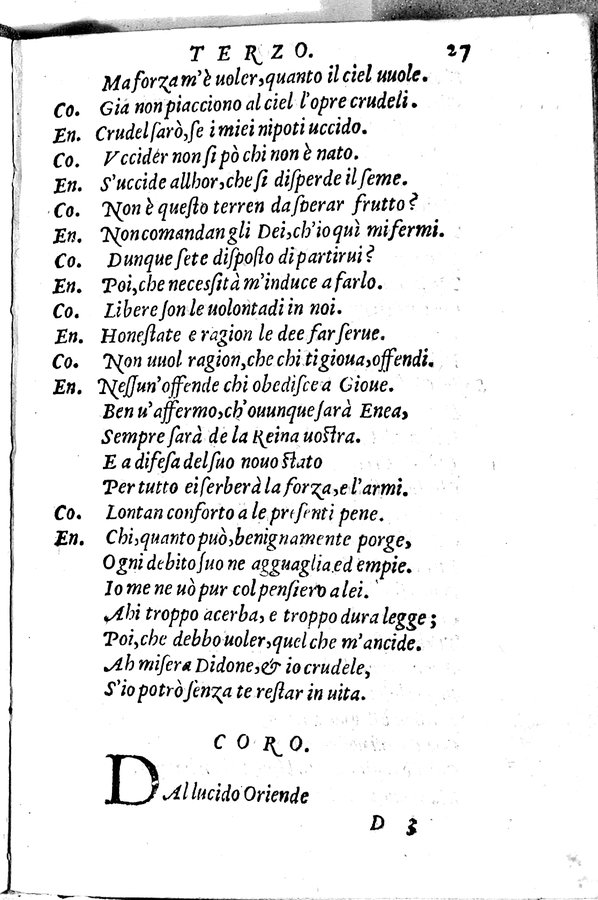 TERZO. 27
Ma forza m'è uoler, quanto il ciel uuole.
Co. Gia non piacciono al ciel l'opre crudeli.
En. Crudel sarò, se i miei nipoti uccido.
Co. Vccider non si pò chi non è nato.
En. S'uccide allhor, che si disperde il seme.
Co. Non è questo terren da sperar frutto?
En. Non comandan gli Dei, ch'io quì mi fermi.
Co. Dunque sete disposto di partirui?
En. Poi, che necessità m'induce a farlo.
Co. Libere son le uolontadi in noi.
En. Honestate e ragion le dee far serue.
Co. Non uuol ragion, che chi ti gioua, offendi.
En. Nessun' offende chi obedisce a Gioue.
Ben u'affermo, ch'ouunque sarà Enea,
Sempre sarà de la Reina uostra.
E a difesa del suo nouo stato
Per tutto ei serberà la forza, e l'armi.
Co. Lontan conforto a le presenti pene.
En. Chi, quanto può, benignamente porge,
Ogni debito suo ne agguaglia, ed empie.
Io me ne uò pur col pensiero a lei.
Ahi troppo acerba, e troppo dura legge;
Poi, che debbo uoler, quel che m'ancide.
Ah misera Didone, & io crudele,
S'io potrò senza te restar in uita.
CORO.
DAl lucido Oriende
D 3